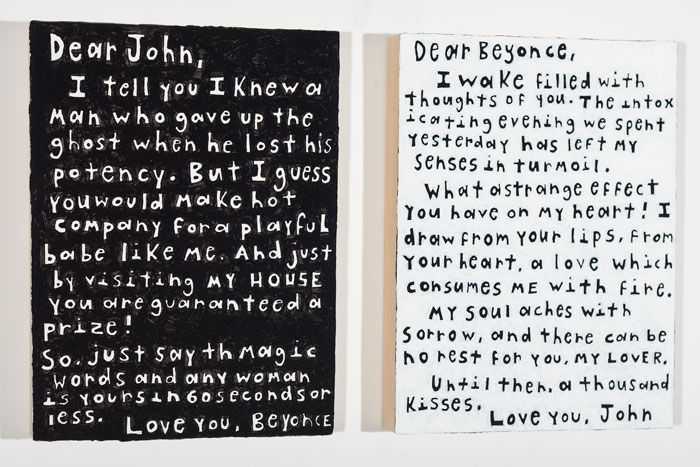 Dear John,
I tell you I Knew a
Man who gave up the
ghost when he lost his
potency. But I guess
You would make hot
company for a playful
babe like me. And just
by visiting MY HOUSE
You are guaranteed a
prize!
So, just say th magic
words and any woman
is yours in 60 seconds or
less. Love You, Beyonce
Dear Beyonce,
I wake filled with
thoughts of you. The intox
icating evening we spent
Yesterday has left my
senses in turmoil.
What a strange effect
You have on my heart! I
draw from your lips, from
Your heart, a love which
consumes ME with fire.
MY soul aches with
Sorrow, and there can be
no rest for you, MY LOVER.
Until then, a thousand
Kisses.
Love You, John